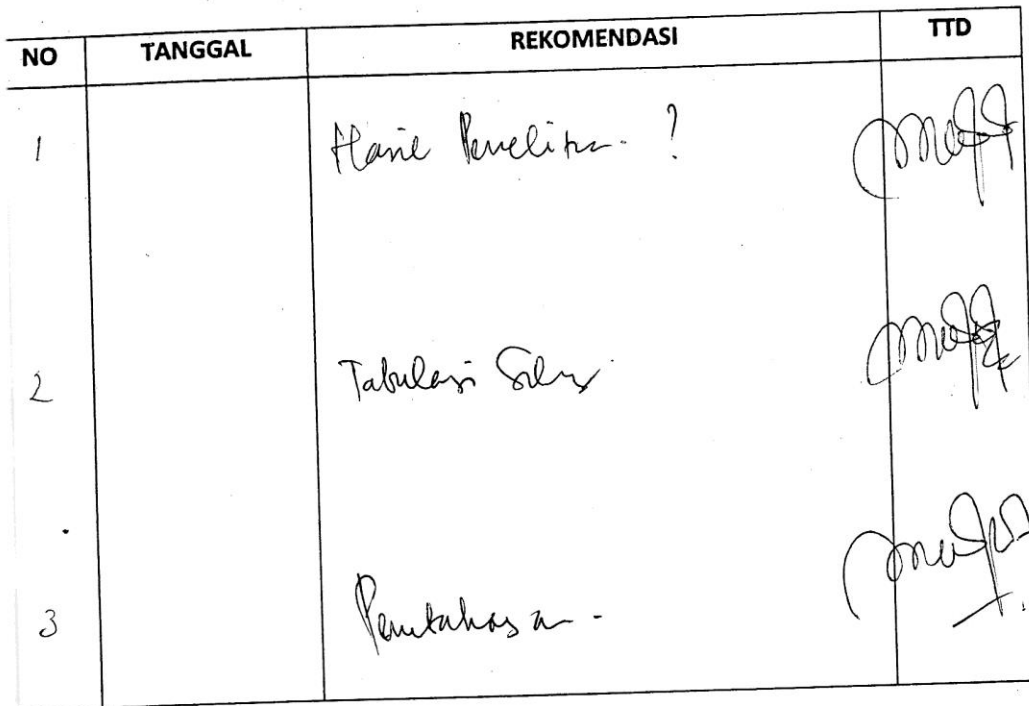 NO TANGGAL REKOMENDASI TTD
1 Hasil Penelitian ?
2 Tabulasi Silang
3 Pembahasan -